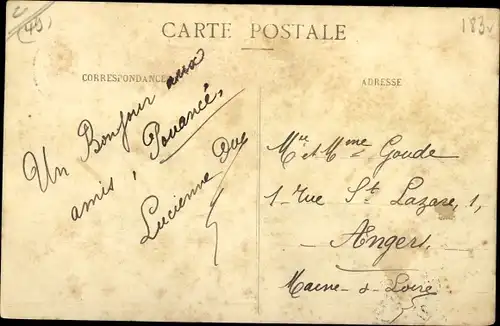 (49)
183
CARTE POSTALE
CORRESPONDANCE
ADRESSE
Un Bonjour aux
amis, Pouancé,
Lucienne
Mr et Mme Goude
1 - rue St Lazare, 1,
Angers
Maine - & - Loire